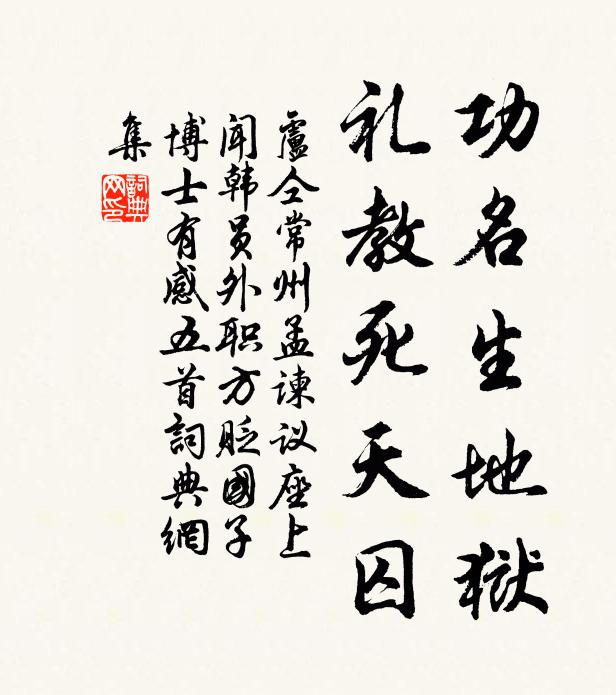 功名生地獄
礼教死天囚
盧仝常州孟諫议座上
闻韩员外职方貶國子
博士有感五首詞典網
集
詞典網印